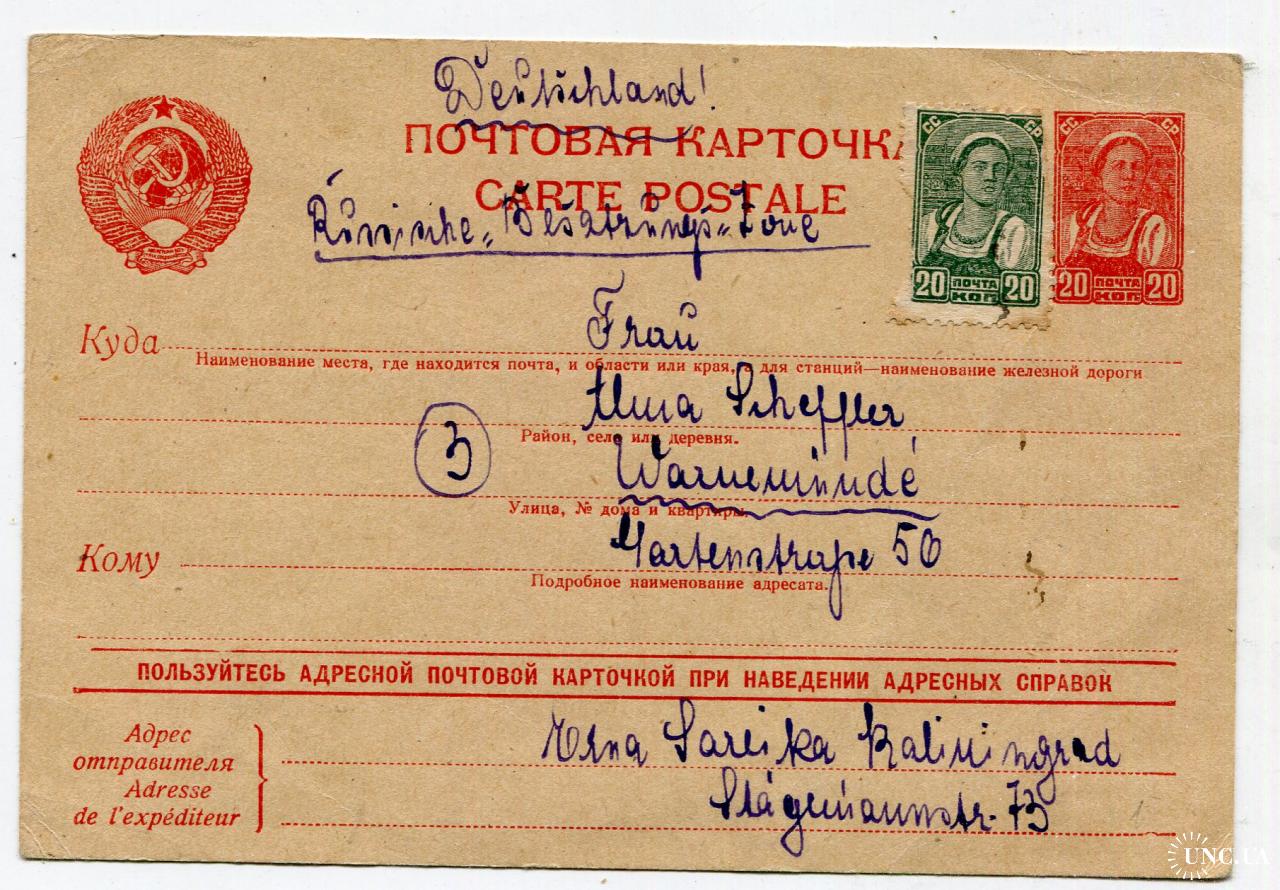 Deutschland!
ПОЧТОВАЯ КАРТОЧКА
CARTE POSTALE
Russische „Besatzungs" Zone
СС СР
20 ПОЧТА КОП 20
СС СР
20 ПОЧТА КОП 20
Куда
Frau
Наименование места, где находится почта, и области или края, а для станций—наименование железной дороги
Scheffler,
Район, село или деревня.
3
Warnemünde
Улица, № дома и квартиры.
Кому
50
Подробное наименование адресата.
ПОЛЬЗУЙТЕСЬ АДРЕСНОЙ ПОЧТОВОЙ КАРТОЧКОЙ ПРИ НАВЕДЕНИИ АДРЕСНЫХ СПРАВОК
Адрес
отправителя
Adresse
de l'expéditeur
Erna Sareika Kaliningrad
Stägemannstr. 73
UNC.UA